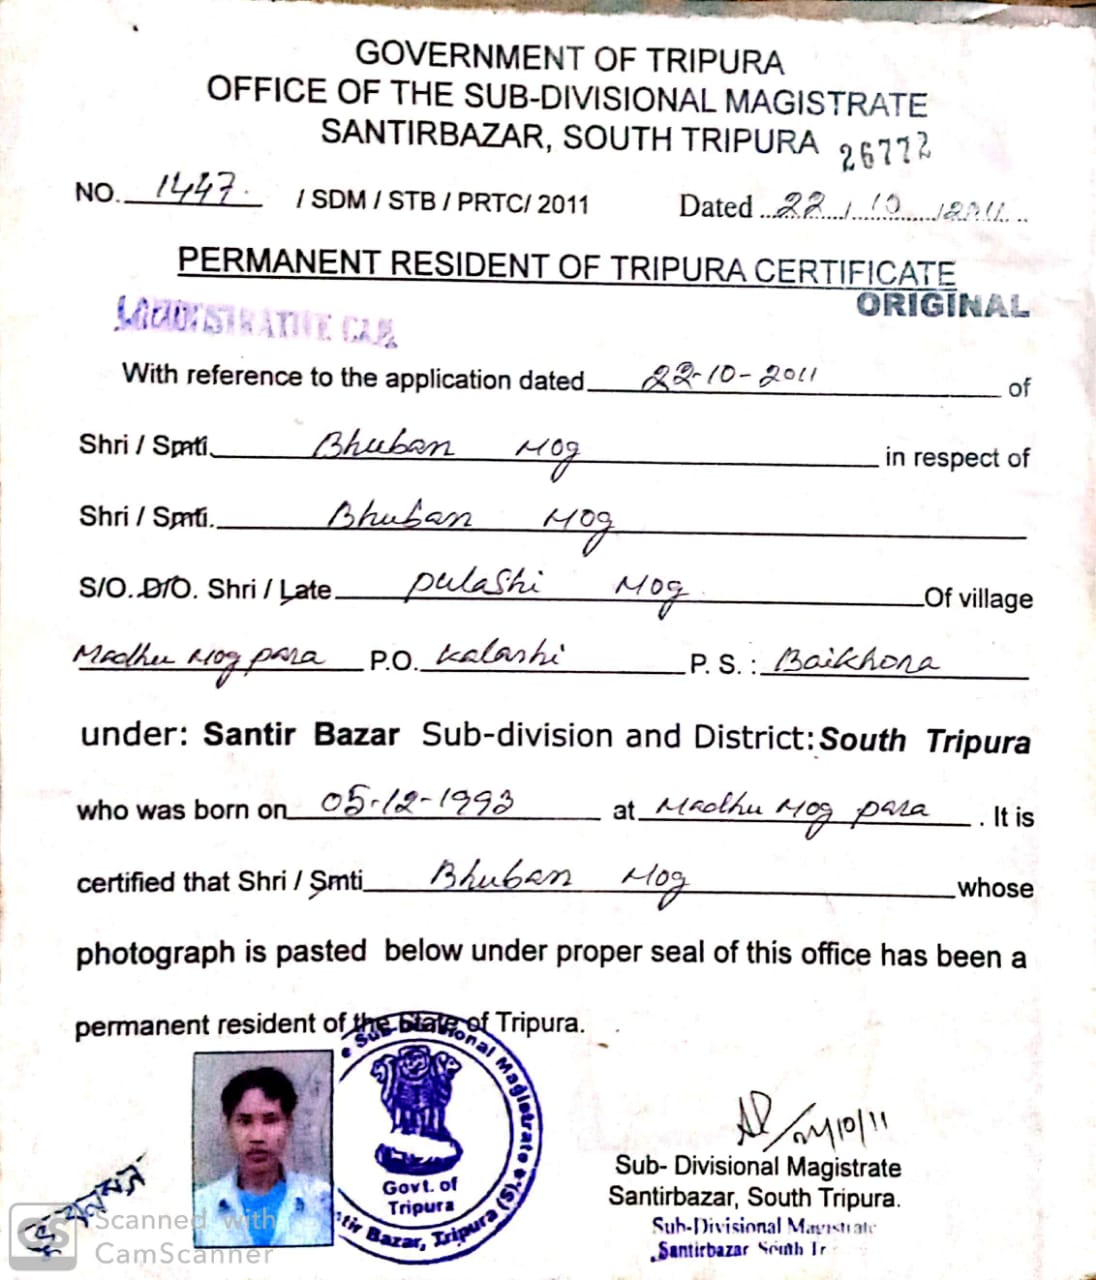 GOVERNMENT OF TRIPURA
OFFICE OF THE SUB-DIVISIONAL MAGISTRATE
SANTIRBAZAR, SOUTH TRIPURA 26772
NO. 1447. / SDM / STB / PRTC/ 2011 Dated 22/10/2011
PERMANENT RESIDENT OF TRIPURA CERTIFICATE
ORIGINAL
With reference to the application dated 22-10-2011 of
Shri / Smti. Bhuban Mog in respect of
Shri / Smti. Bhuban Mog
S/O. D/O. Shri / Late Pulashi Mog Of village
Madhu Mog para P.O. Kalashi P. S. : Baikhora
under: Santir Bazar Sub-division and District: South Tripura
who was born on 05-12-1993 at Madhu Mog para . It is
certified that Shri / Smti Bhuban Mog whose
photograph is pasted below under proper seal of this office has been a
permanent resident of the State of Tripura.
Sub-Divisional Magistrate
Govt. of
Tripura
Bazar, Tripura (S)
Sub- Divisional Magistrate
Santirbazar, South Tripura.
Sub-Divisional Magistrate
Santirbazar South Tr
CS Scanned with
CamScanner